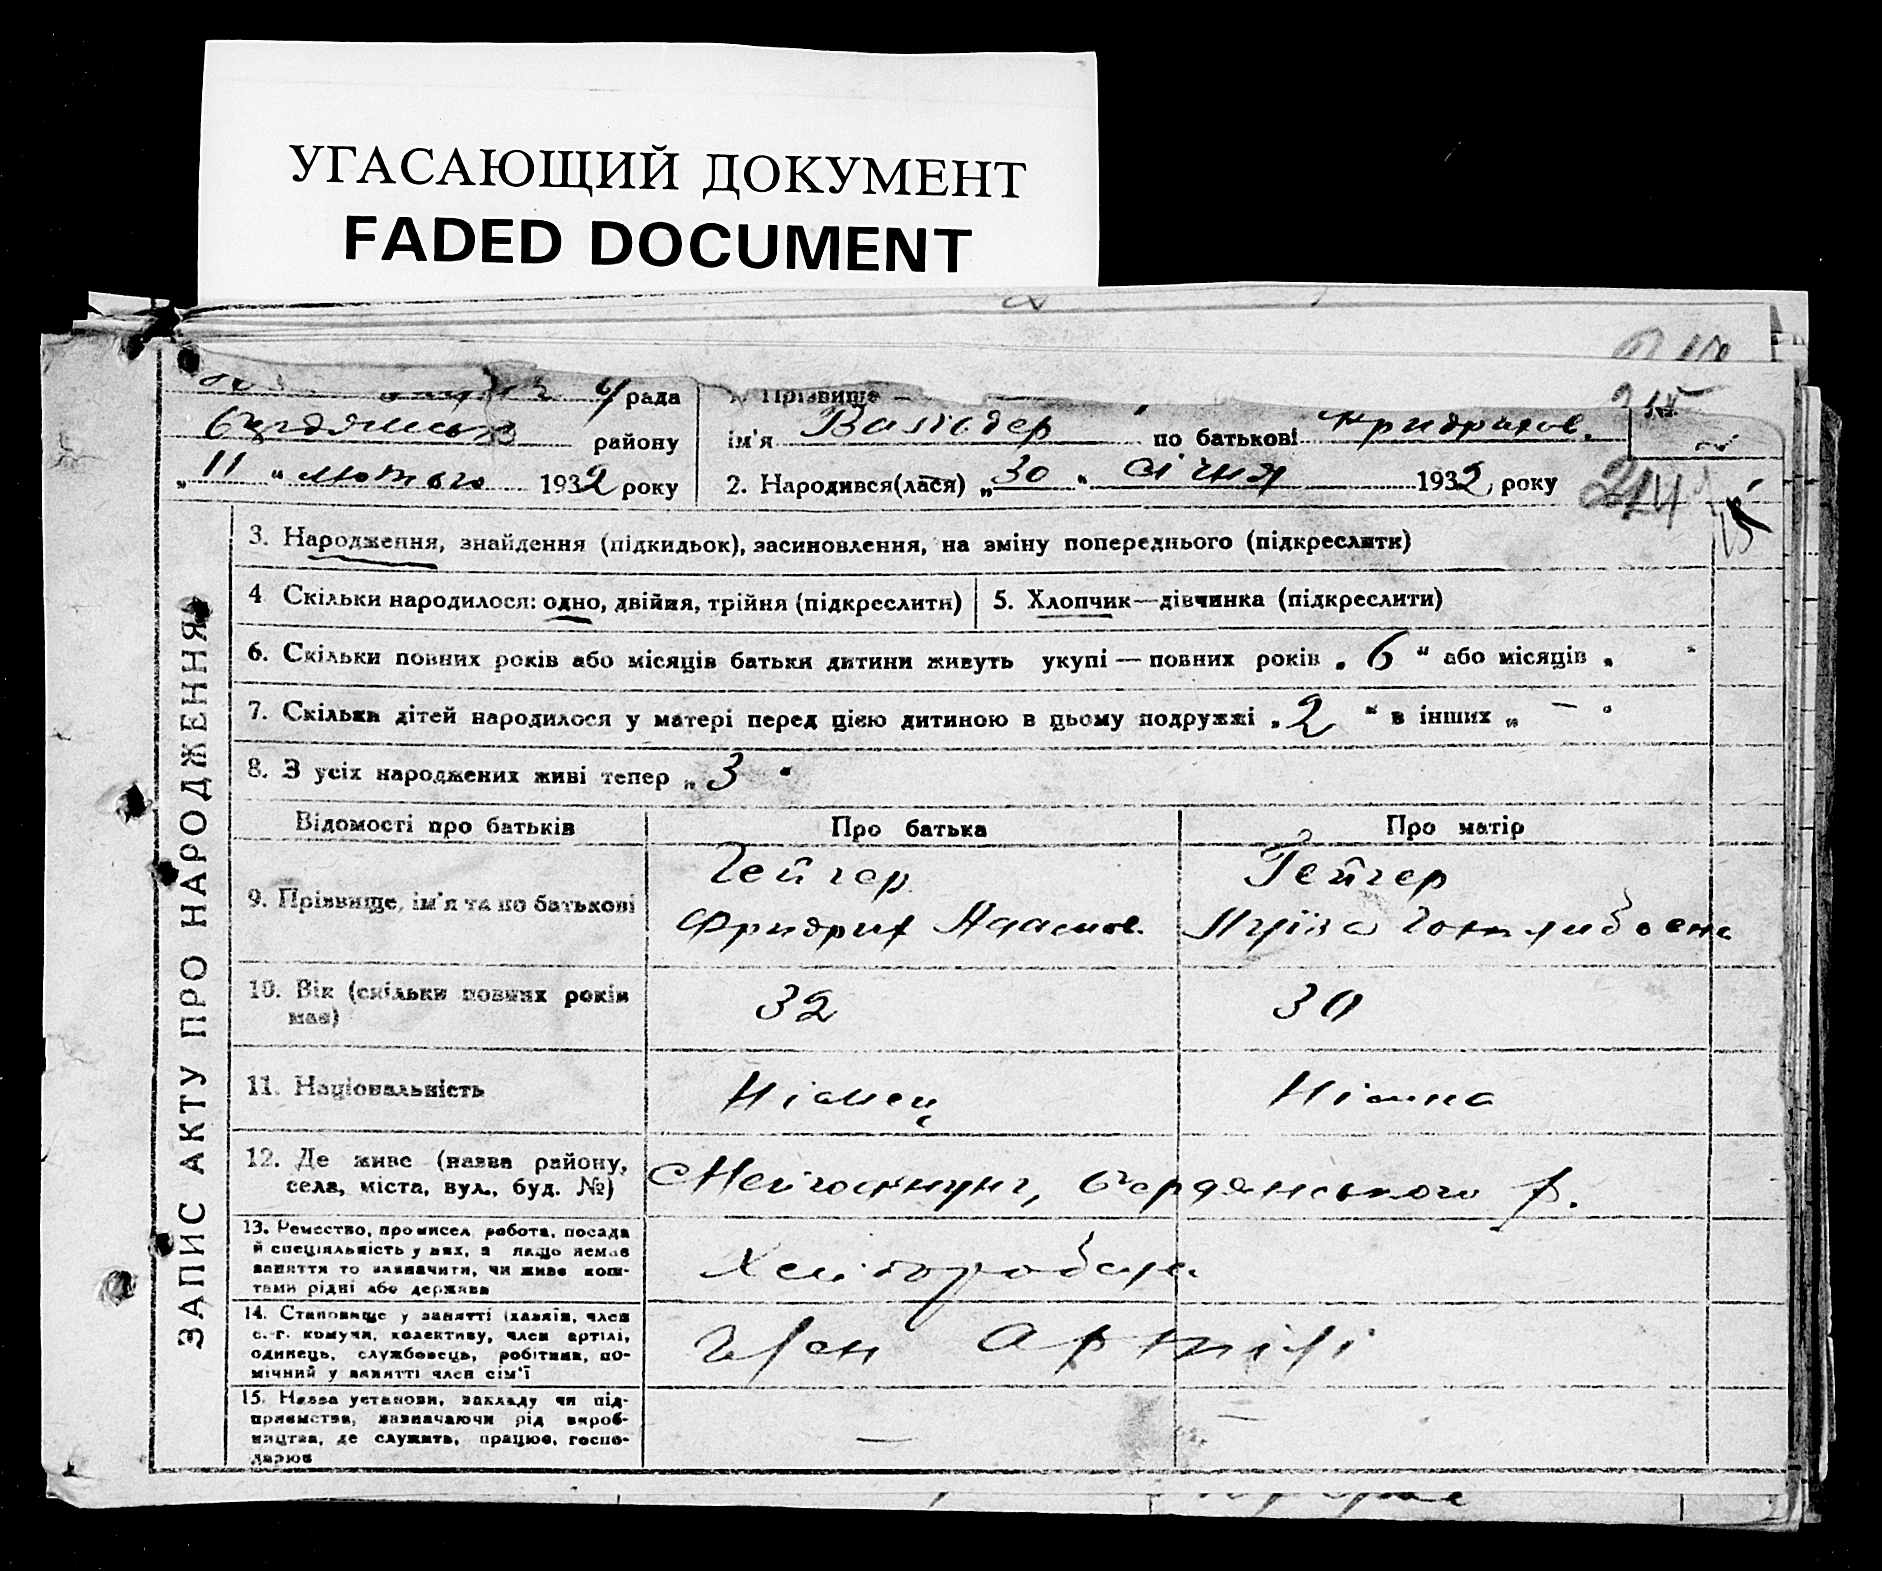 УГАСАЮЩИЙ ДОКУМЕНТ
FADED DOCUMENT
рада
району
„11“ лютого 1932 року
Прізвище
ім'я Вальдер по батькові Фридрихов.
2. Народився(лася) „30“ січня 1932 року
214
ЗАПИС АКТУ ПРО НАРОДЖЕННЯ
3. Народження, знайдення (підкидьок), засиновлення, на зміну попереднього (підкреслити)
4 Скільки народилося: одно, двійня, трійня (підкреслити)
5. Хлопчик—дівчинка (підкреслити)
6. Скільки повних років або місяців батьки дитини живуть укупі — повних років „6“ або місяців „ “
7. Скільки дітей народилося у матері перед цією дитиною в цьому подружжі „2“ в інших „—“
8. З усіх народжених живі тепер „3“
Відомості про батьків
Про батька
Про матір
9. Прізвище, ім'я та по батькові
Гейгер
Фридрих Адамов.
Гейгер
Луїза Готлибовна
10. Вік (скільки повних років має)
32
30
11. Національність
Німец
Німка
12. Де живе (назва району,
села, міста, вул., буд. №)
Бердянського р.
13. Ремество, промисел, робота, посада
й спеціяльність у них, а якщо немає
заняття то зазначити, чи живе кош-
тами рідні або держави
Хліборобы
14. Становище у занятті (хазяїн, член
с.-г. комуни, колективу, член артілі,
одинець, службовець, робітник, по-
мічний у занятті член сім'ї
Член Артілі
15. Назва установи, закладу чи під-
приємства, зазначаючи рід вироб-
ництва, де служить, працює, госпо-
дарює
—
—